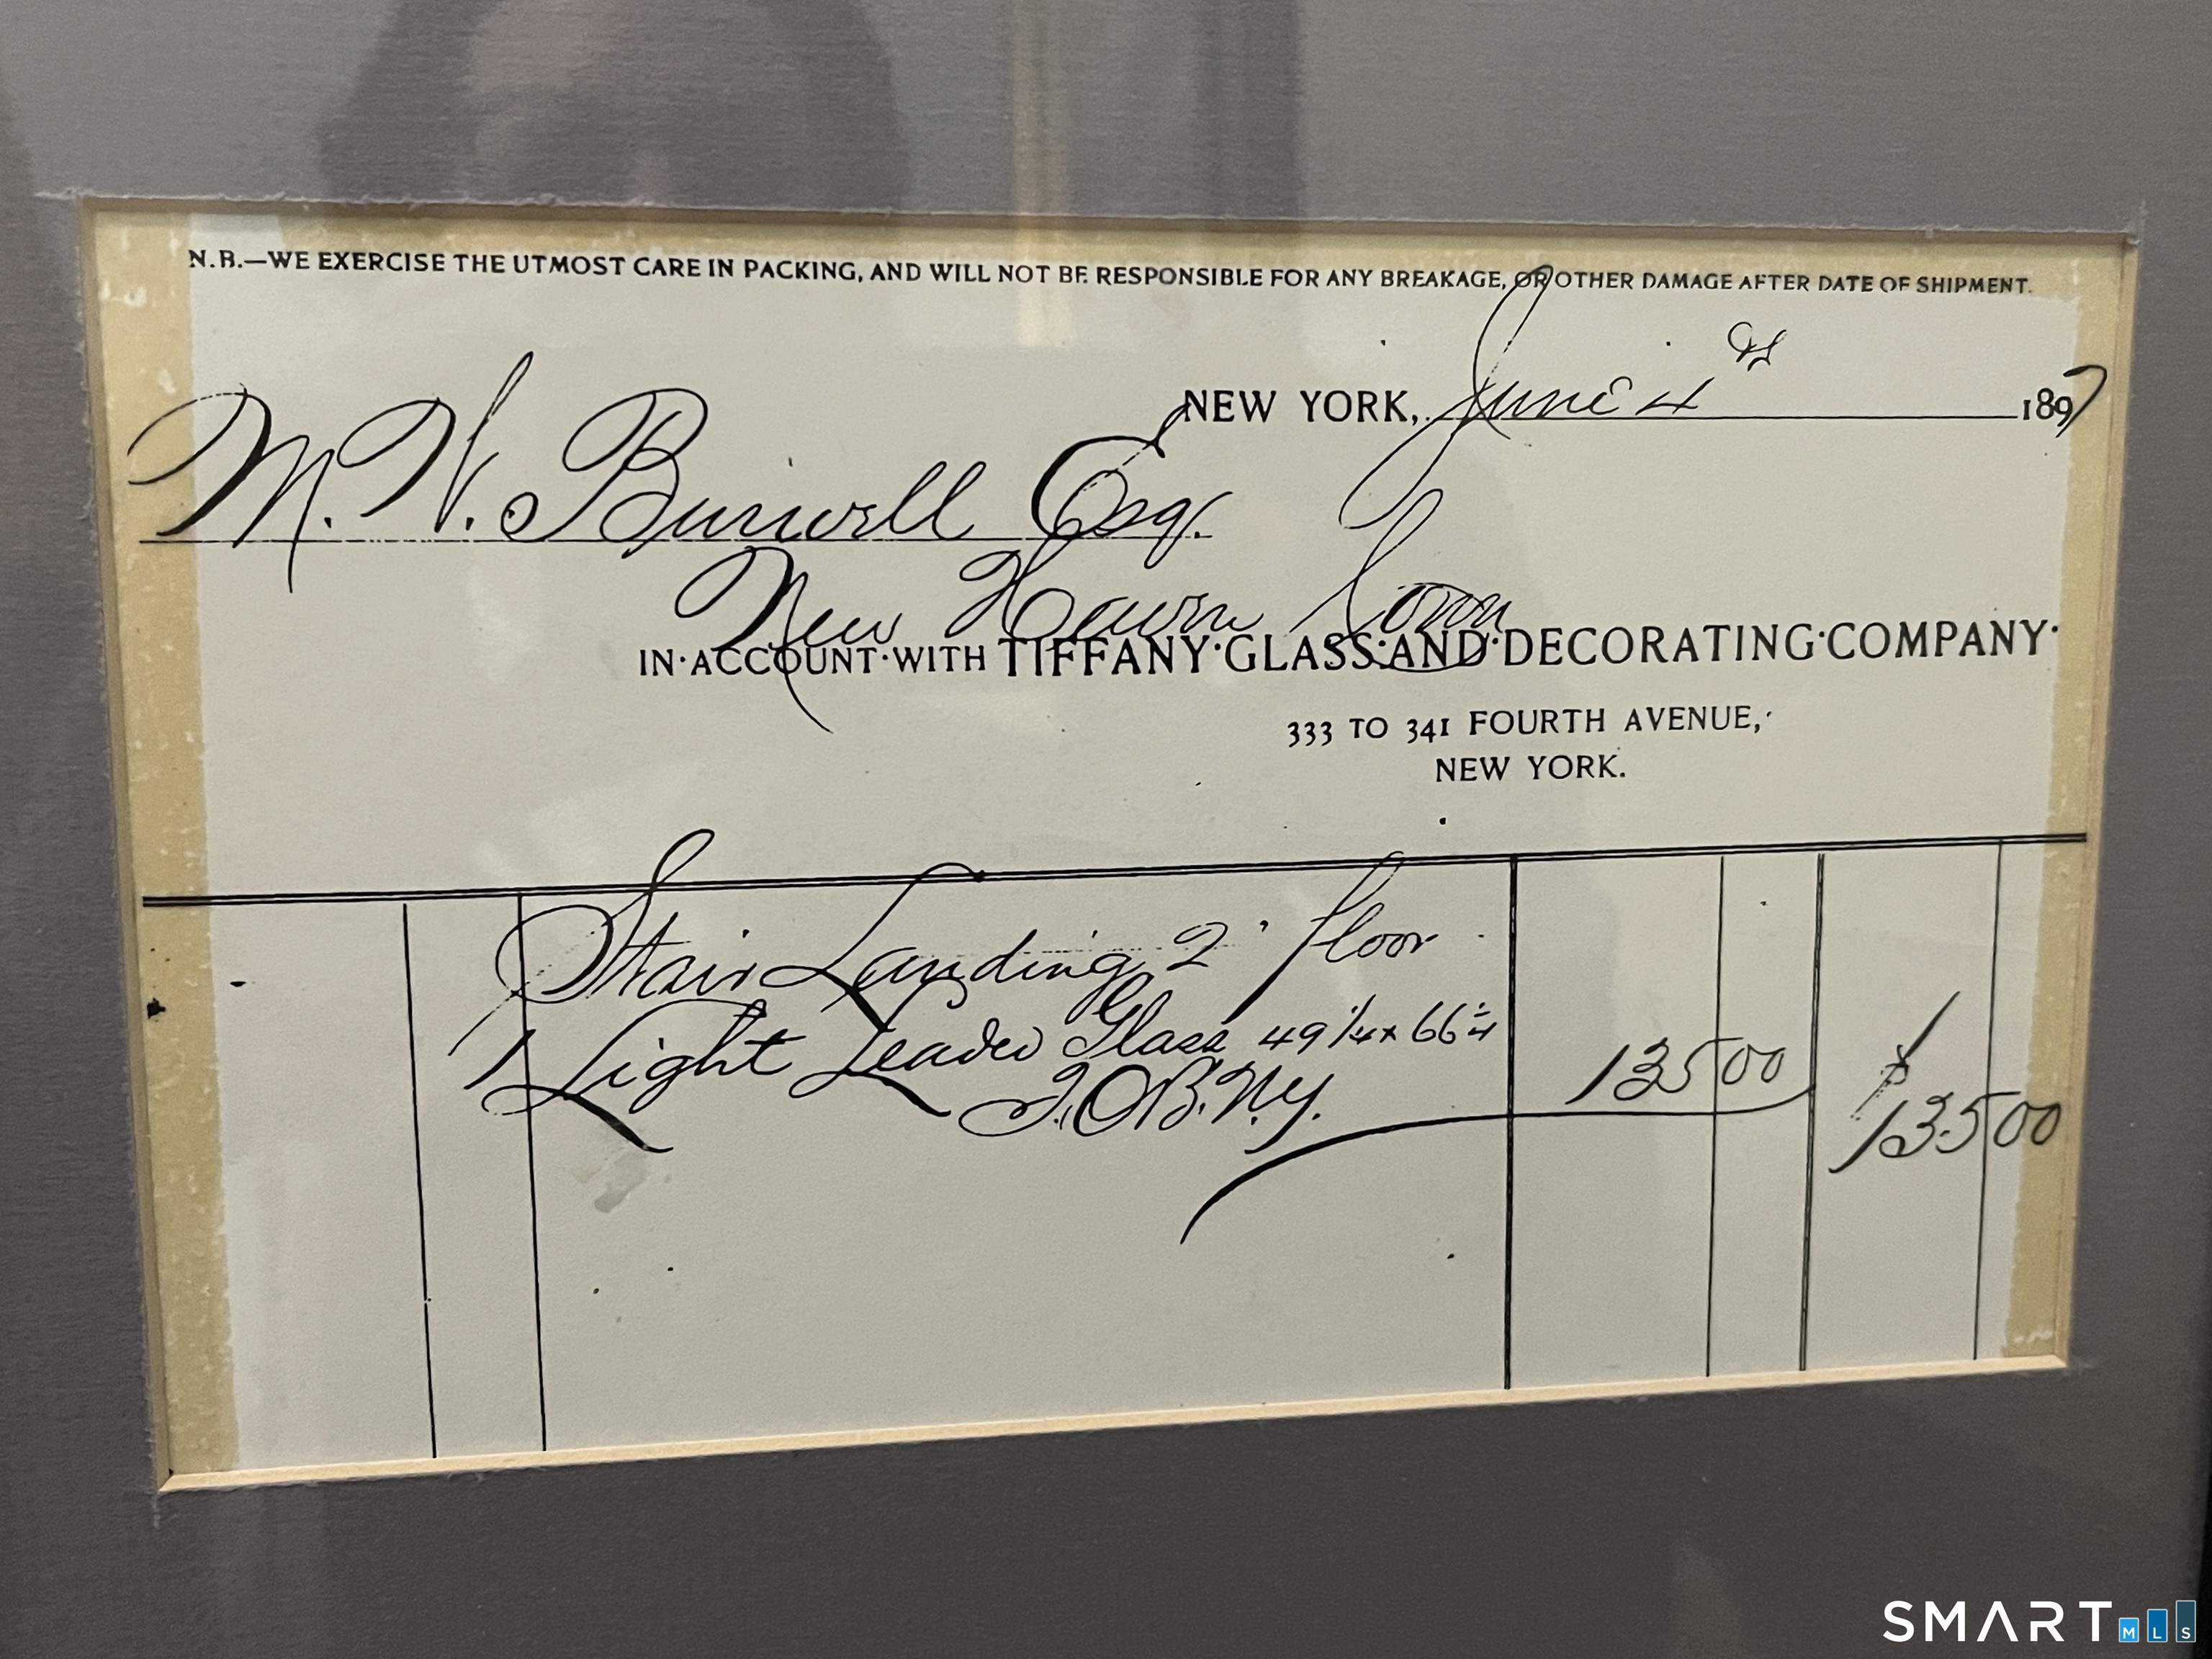 N.B.—WE EXERCISE THE UTMOST CARE IN PACKING, AND WILL NOT BE RESPONSIBLE FOR ANY BREAKAGE, OR OTHER DAMAGE AFTER DATE OF SHIPMENT.
NEW YORK, June 4 1897
Esq.
New Haven Conn
IN·ACCOUNT·WITH TIFFANY·GLASS·AND·DECORATING·COMPANY·
333 TO 341 FOURTH AVENUE,
NEW YORK.
Stair Landing 2' floor
1 Light Leaded Glass 49 1/4 x 66
F.O.B. N.Y.
135 00
$
135 00
SMART MLS